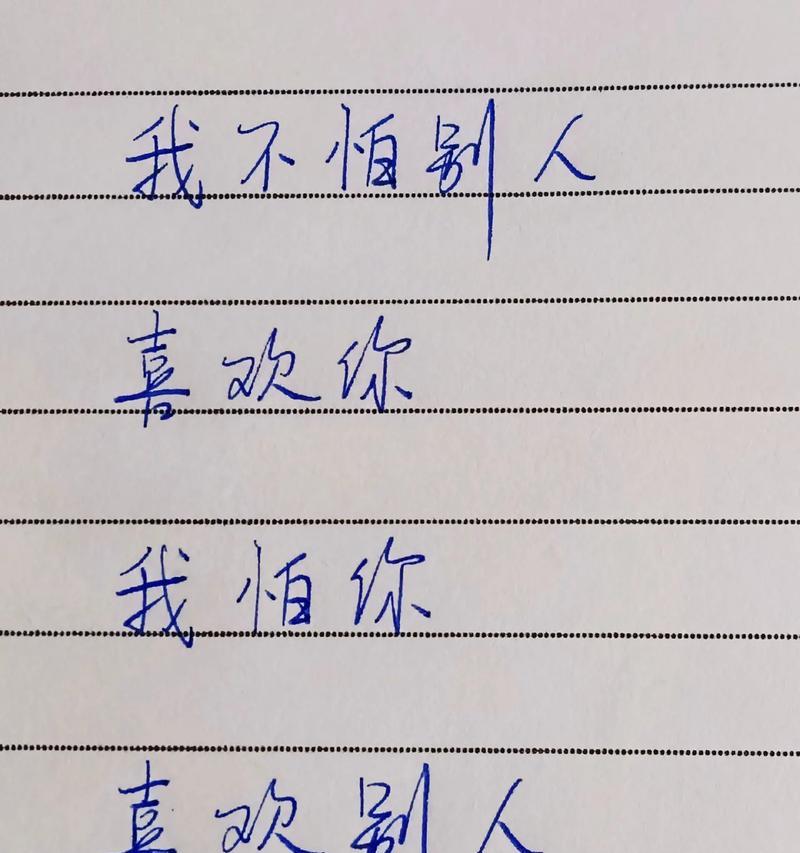 我不怕别人
喜欢你
我怕你
喜欢别人